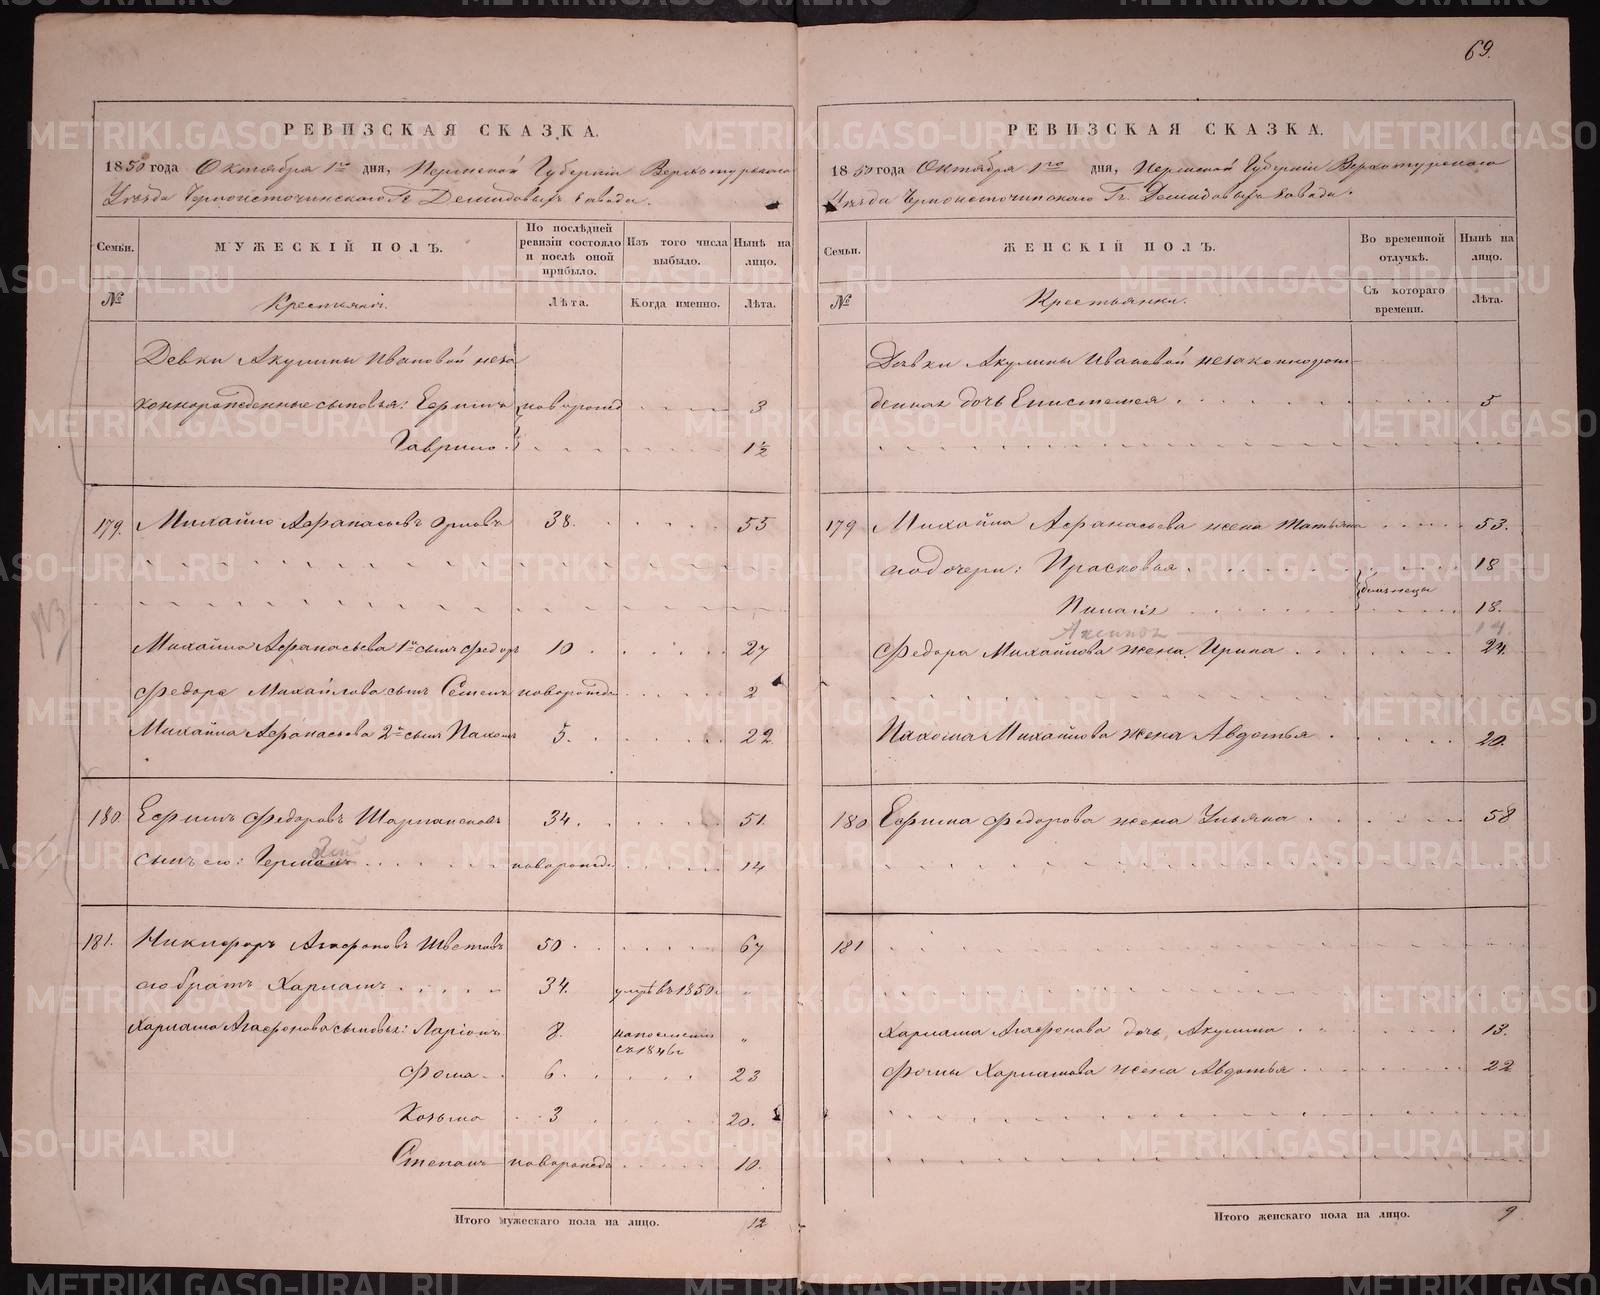 69.
РЕВИЗСКАЯ СКАЗКА.
1850 года Октября 1го дня, Пермской Губерніи Верхотурскаго
Уѣзда Черноисточинскаго Гг. Демидовыхъ завода.
Семьи. МУЖЕСКІЙ ПОЛЪ. По послѣдней ревизіи состояло и послѣ оной прибыло. Изъ того числа выбыло. Нынѣ на лицо.
№ Крестьяне. Лѣта. Когда именно. Лѣта.
Девки Акулины Ивановой неза
коннорожденные сыновья: Ефимъ новорожд 3
Гаврило 1½
179. Михайло Афанасьевъ Орловъ 38. 55
Михайла Афанасьева 1й сынъ Федоръ 10 27
Федора Михайлова сынъ Семенъ новорожд 2
Михайла Афанасьева 2й сынъ Пахомъ 5. 22
180 Ефимъ Федоровъ 34. 51.
сынъ его: Германъ новорожд 14
181. Никифоръ Агафоновъ Шветовъ 50 67
его братъ Харламъ 34. умре въ 1850
Харлама Агафонова сыновья: Ларіонъ 8. на поселеніи съ 1846 г
Фома 6. 23
Козьма 3 20.
Степанъ новорожд 10.
Итого мужескаго пола на лицо. 12
РЕВИЗСКАЯ СКАЗКА.
1850 года Октября 1го дня, Пермской Губерніи Верхотурскаго
Уѣзда Черноисточинскаго Гг. Демидовыхъ завода.
Семьи. ЖЕНСКІЙ ПОЛЪ. Во временной отлучкѣ. Нынѣ на лицо.
№ Крестьянки. Съ котораго времени. Лѣта.
Дѣвки Акулины Ивановой незаконнорож
денная дочь Епистемея 5
179 Михайла Афанасьева жена Татьяна 53.
его дочери: Прасковья 18
близнецы
Пилагія 18.
Аксинья 14
Федора Михайлова жена Ирина 24.
Пахома Михайлова жена Авдотья 20.
180 Ефима Федорова жена Ульяна 58
181
Харлама Агафонова дочь Акулина 13.
Фомы Харламова жена Авдотья 22
Итого женскаго пола на лицо. 9
METRIKI.GASO-URAL.RU